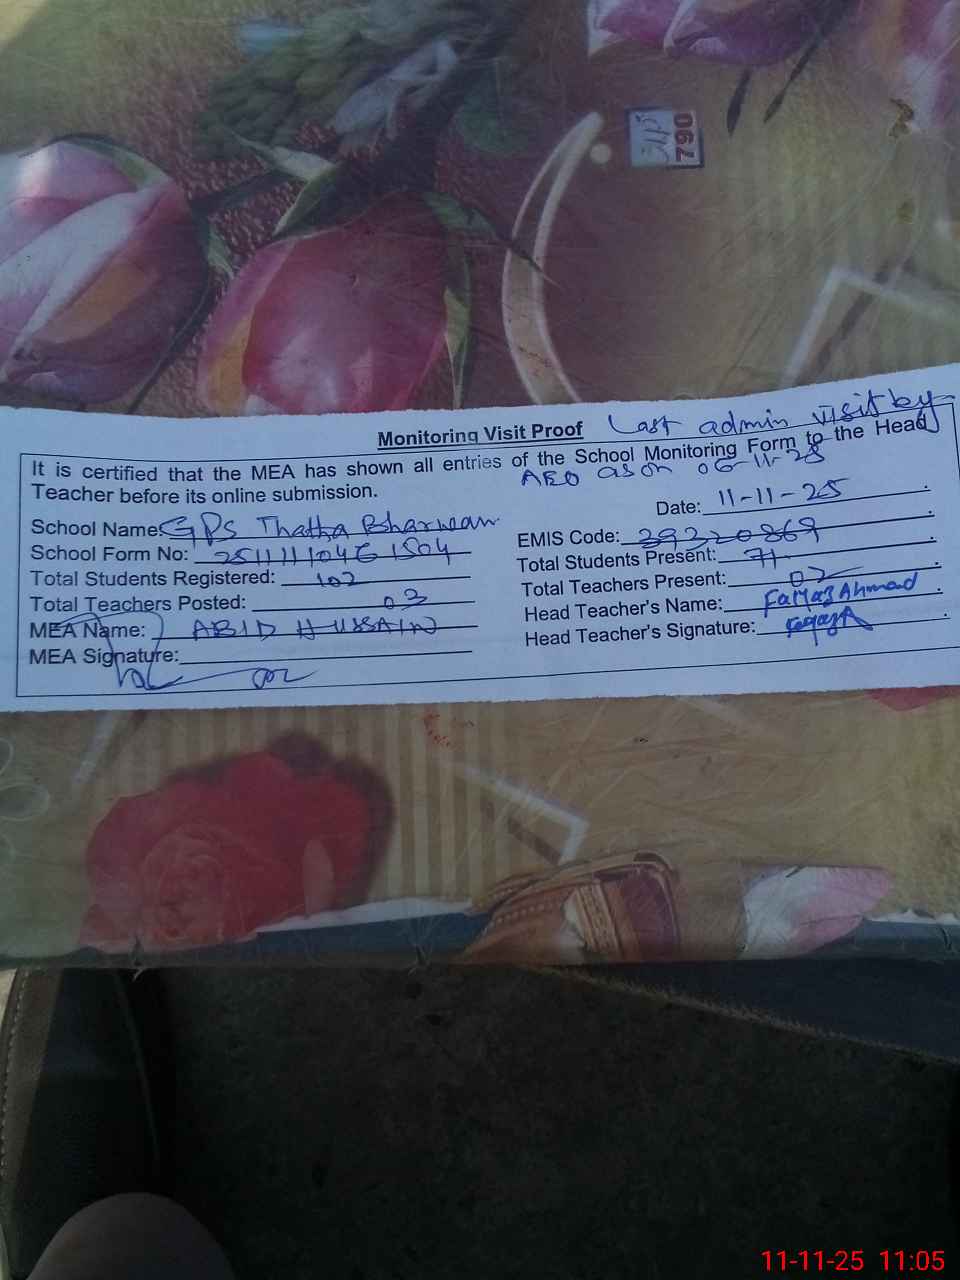 790
Monitoring Visit Proof
Last admin visit by
AEO as on 06-11-25
It is certified that the MEA has shown all entries of the School Monitoring Form to the Head
Teacher before its online submission.
Date: 11-11-25
School Name: GPS Thatha Bharwan
EMIS Code: 39320869
School Form No:
Total Students Present: 71
Total Students Registered: 102
Total Teachers Present: 02
Total Teachers Posted: 03
Head Teacher's Name: Ahmad
MEA Name: ABID HUSSAIN
Head Teacher's Signature:
MEA Signature:
11-11-25 11:05